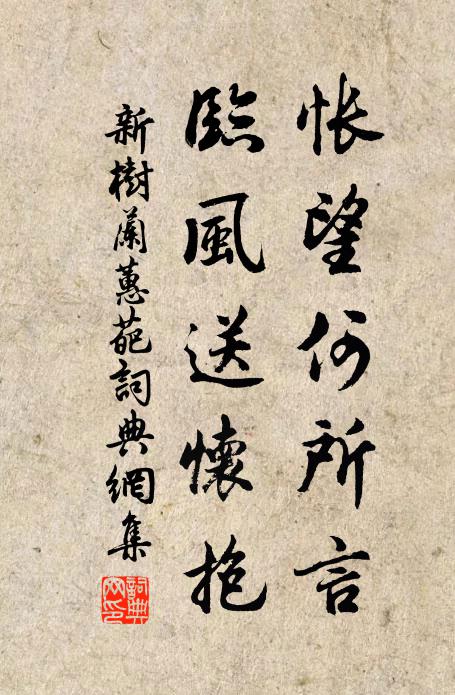 悵望何所言
臨風送懷抱
新樹蘭蕙葩詞典網集
詞典
网印